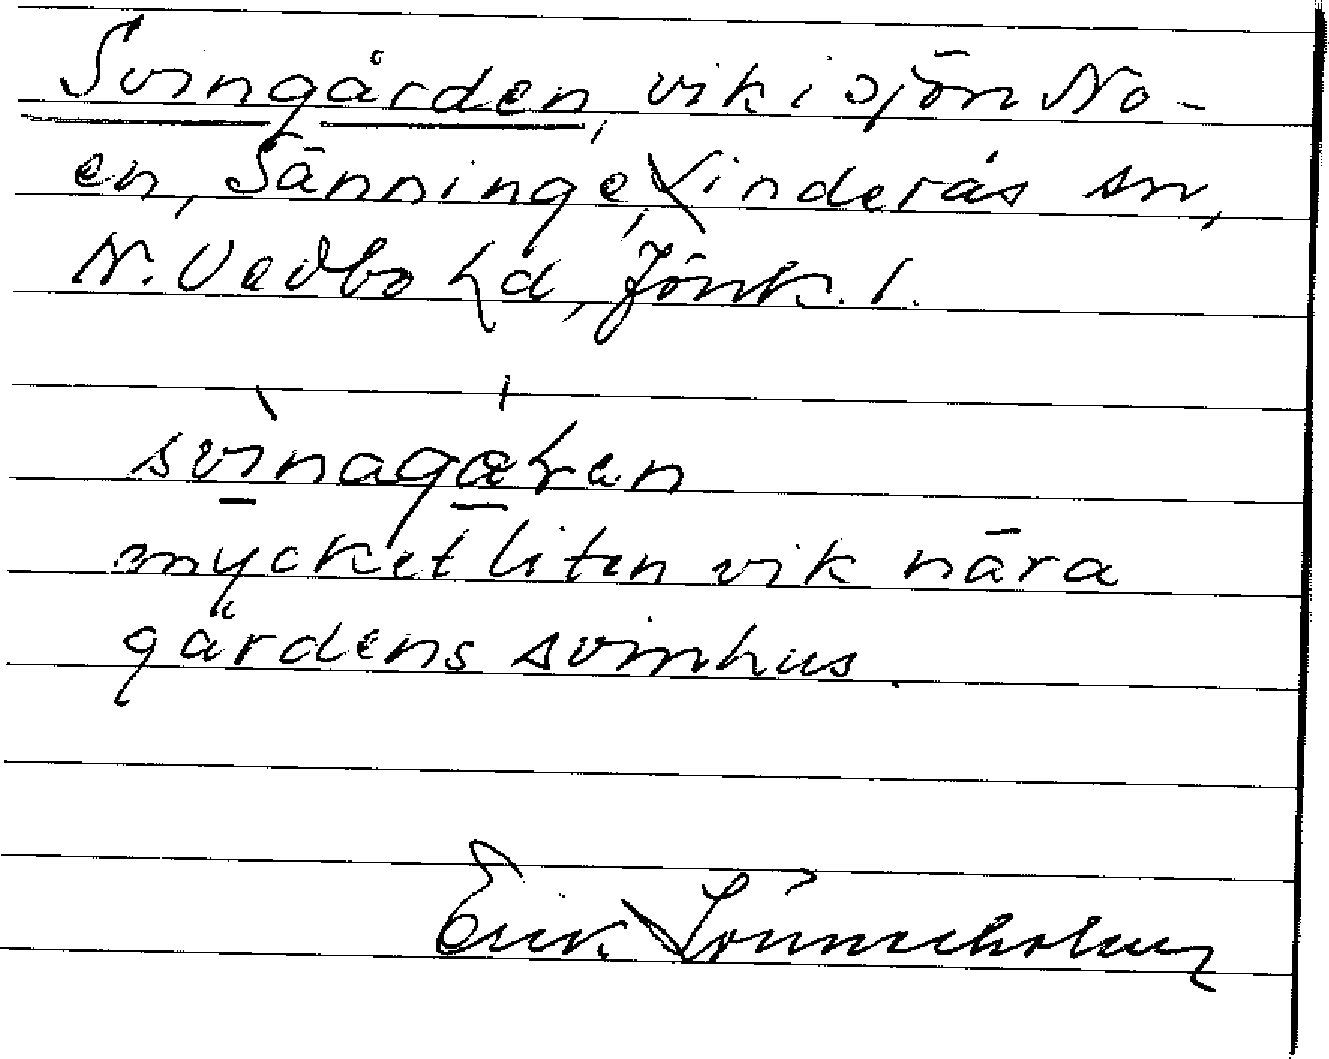 Svingården, vik i sjön No-
en, Sänninge, Vinderås sn,
N. Vedbo hd, Jönk. l.
svinagæƚen
mycket liten vik nära
gårdens svinhus.
Erik Lönnerholm